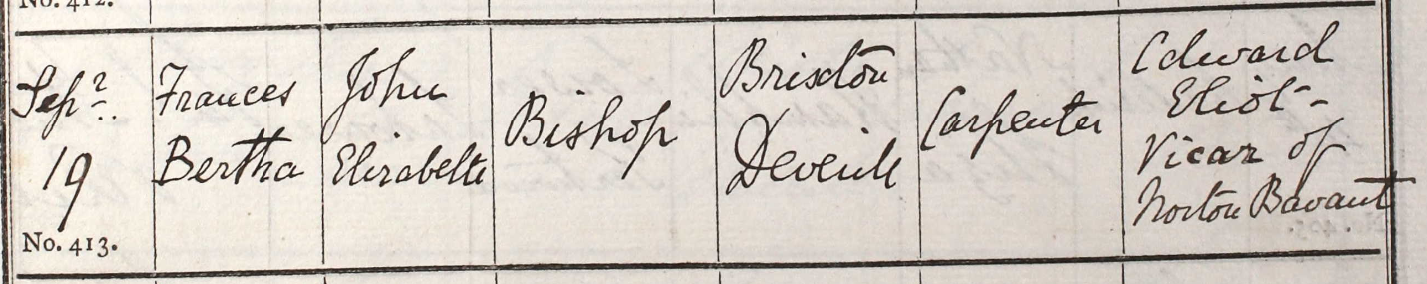 No. 412.
Sepr.
19
No. 413.
Frances
Bertha
John
Elizabeth
Bishop
Brixton
Deverill
Carpenter
Edward
Eliot-
Vicar of
Norton Bavant